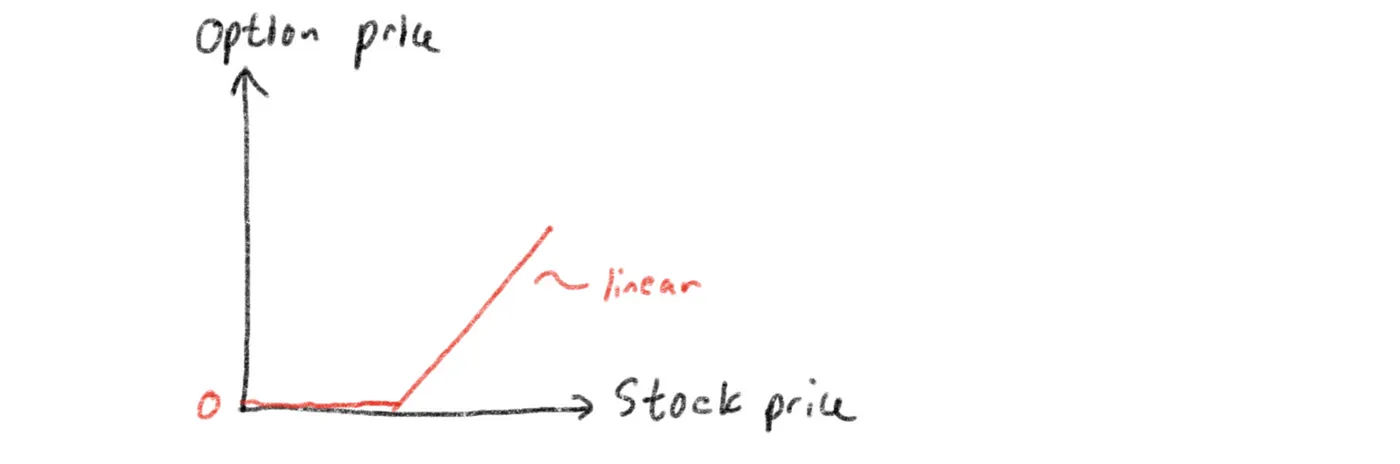 Option price
linear
0
Stock price